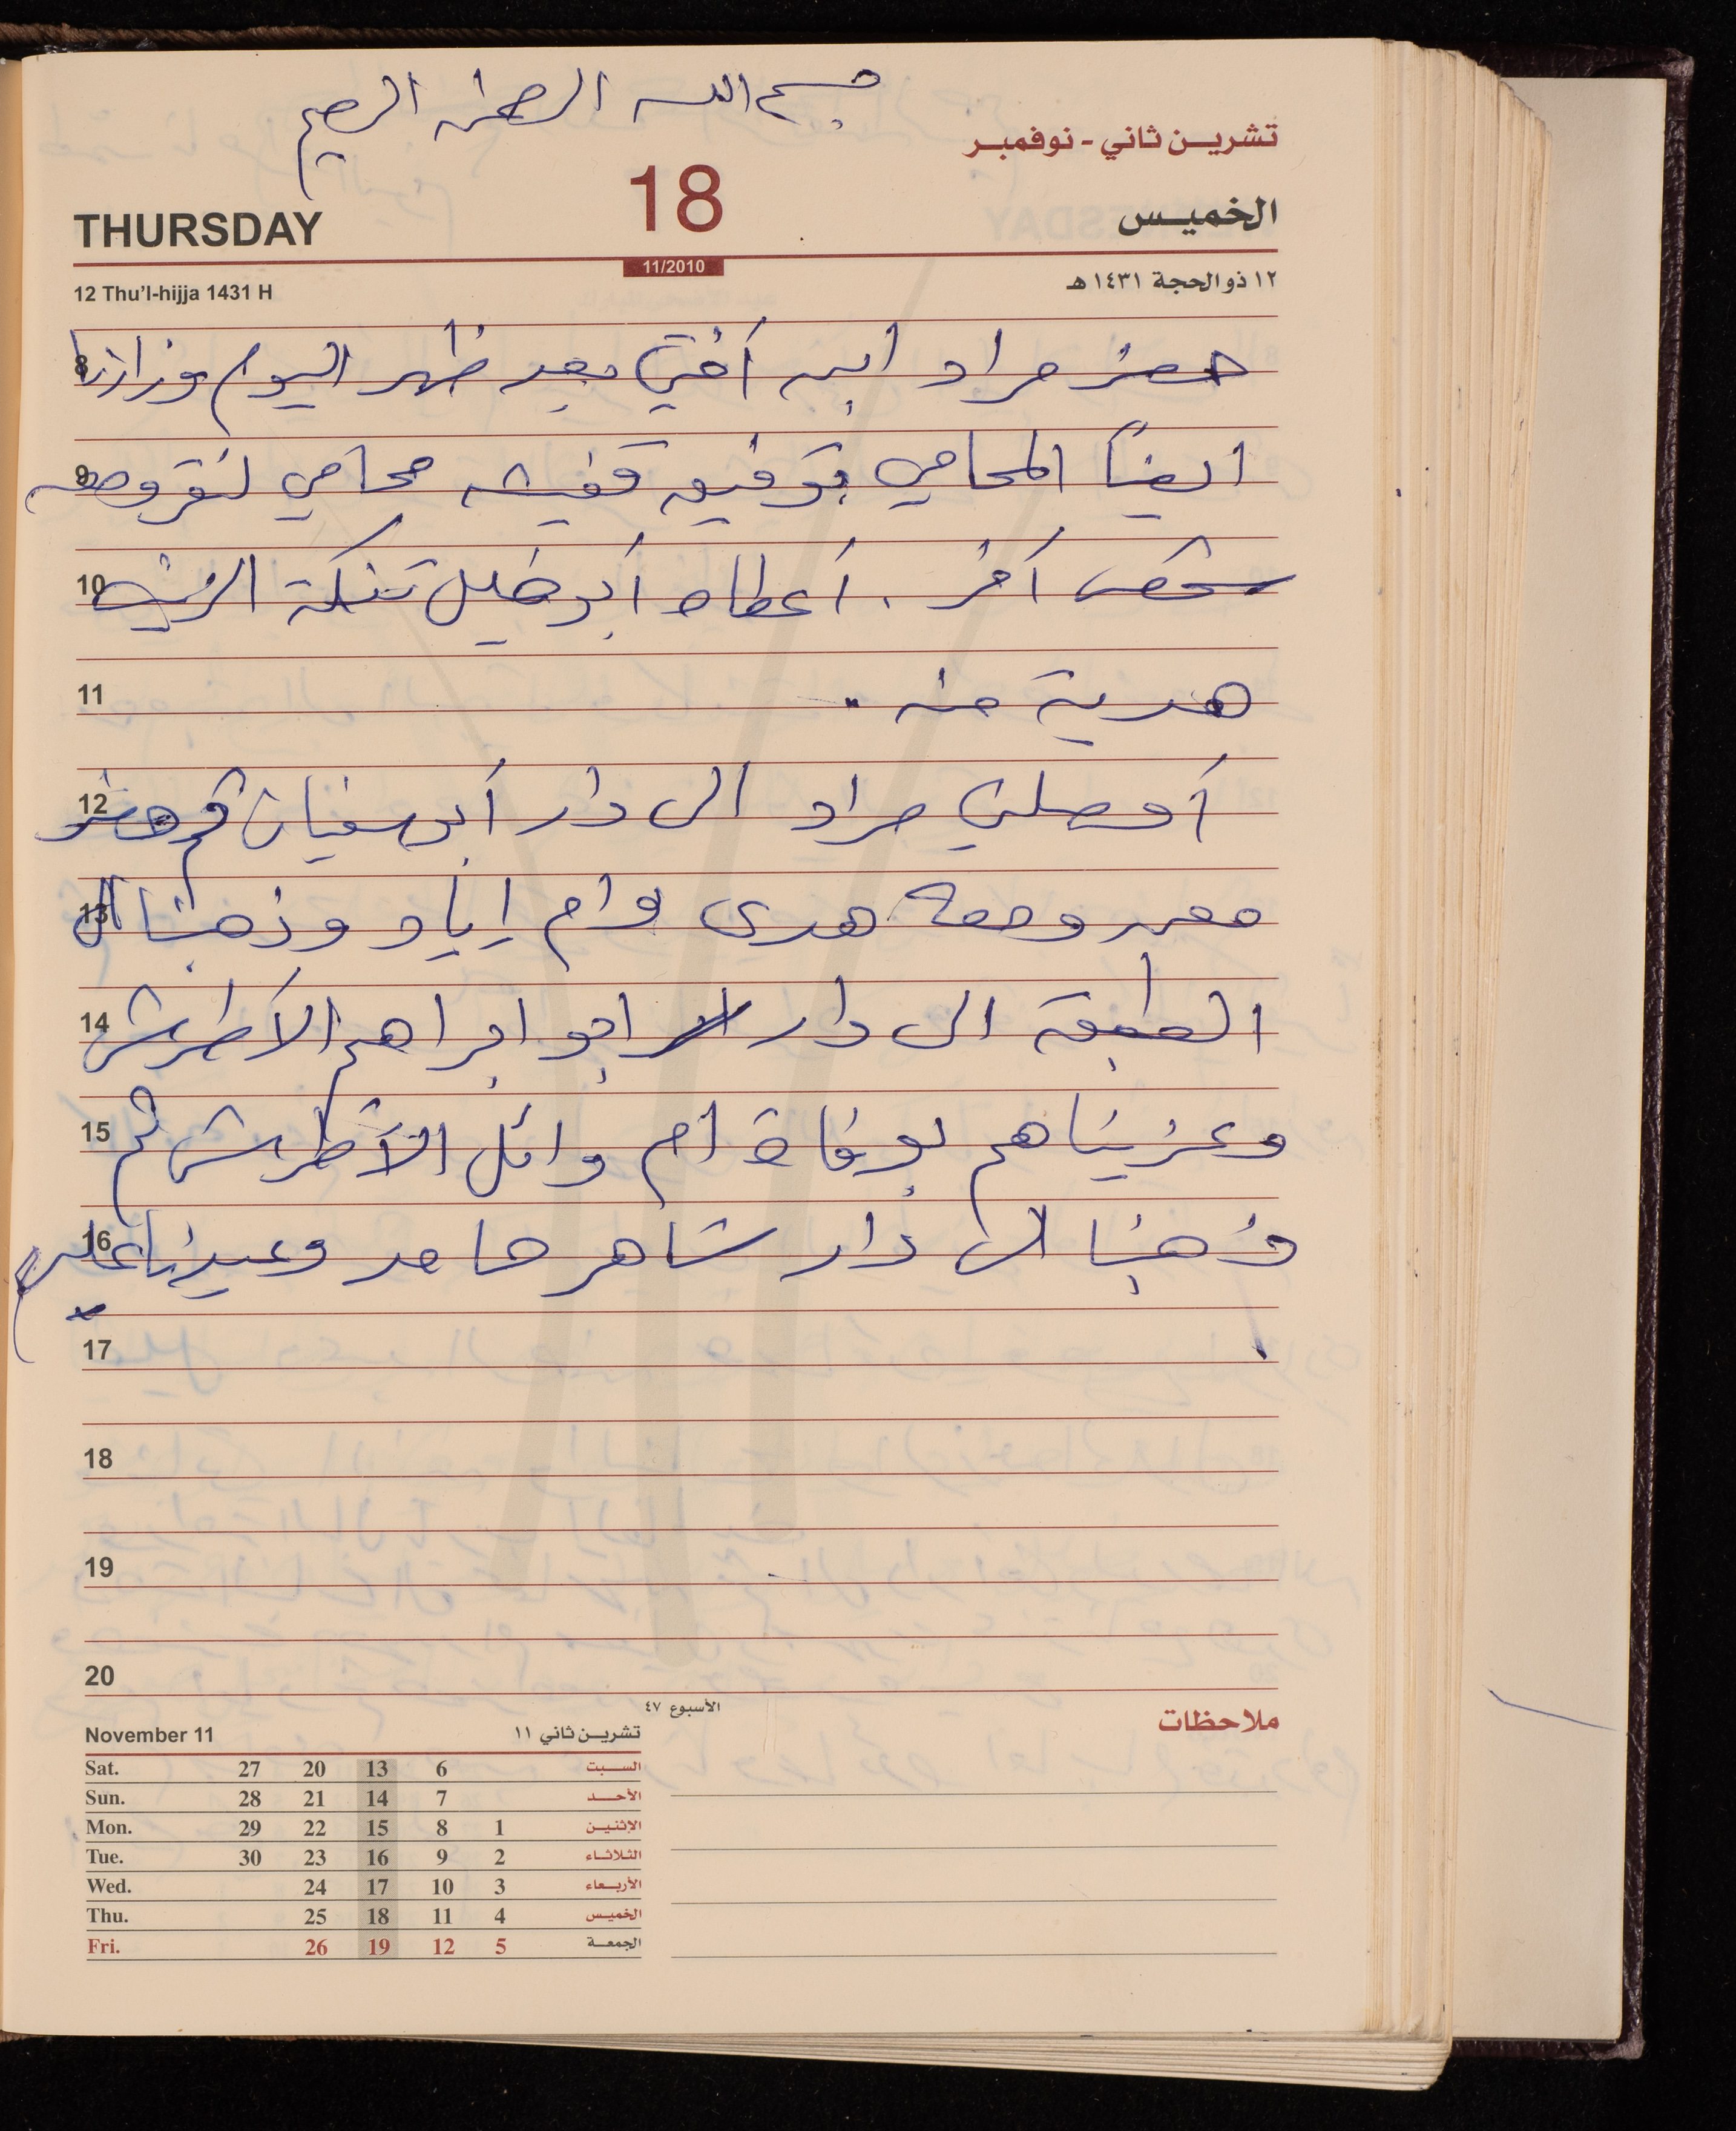 بسم الله الرحمن الرحيم
تشريـن ثاني - نوفمبـر
THURSDAY 18 الخميـس
11/2010
12 Thu'l-hijja 1431 H ١٢ ذو الحجة ١٤٣١ هـ
حضر مراد ابن أختي بعد ظهر اليوم وزارنا
8
ايضاً المحامي توفيق قفيشه محامي
9
شخص آخر . أعطاه أبو خليل تنكة الزيت
10
هدية منه .
11
أوصلني مراد الى دار أبو سفيان ثم
12
معه هدى وام إياد وذهبنا الى
13
الى دار ابو ابراهيم الأطرش
14
وعزيناهم بوفاة ام وائل الأطرش ثم
15
ذهبنا الى دار شاهر حامد وعيدنا عليهم
16
.
17
18
19
20
الأسبوع ٤٧
ملاحظات
November 11 تشريـن ثاني ١١
Sat. 27 20 13 6 السـبت
Sun. 28 21 14 7 الأحـد
Mon. 29 22 15 8 1 الإثنيـن
Tue. 30 23 16 9 2 الثـلاثـاء
Wed. 24 17 10 3 الأربـعاء
Thu. 25 18 11 4 الخميـس
Fri. 26 19 12 5 الجمعـة